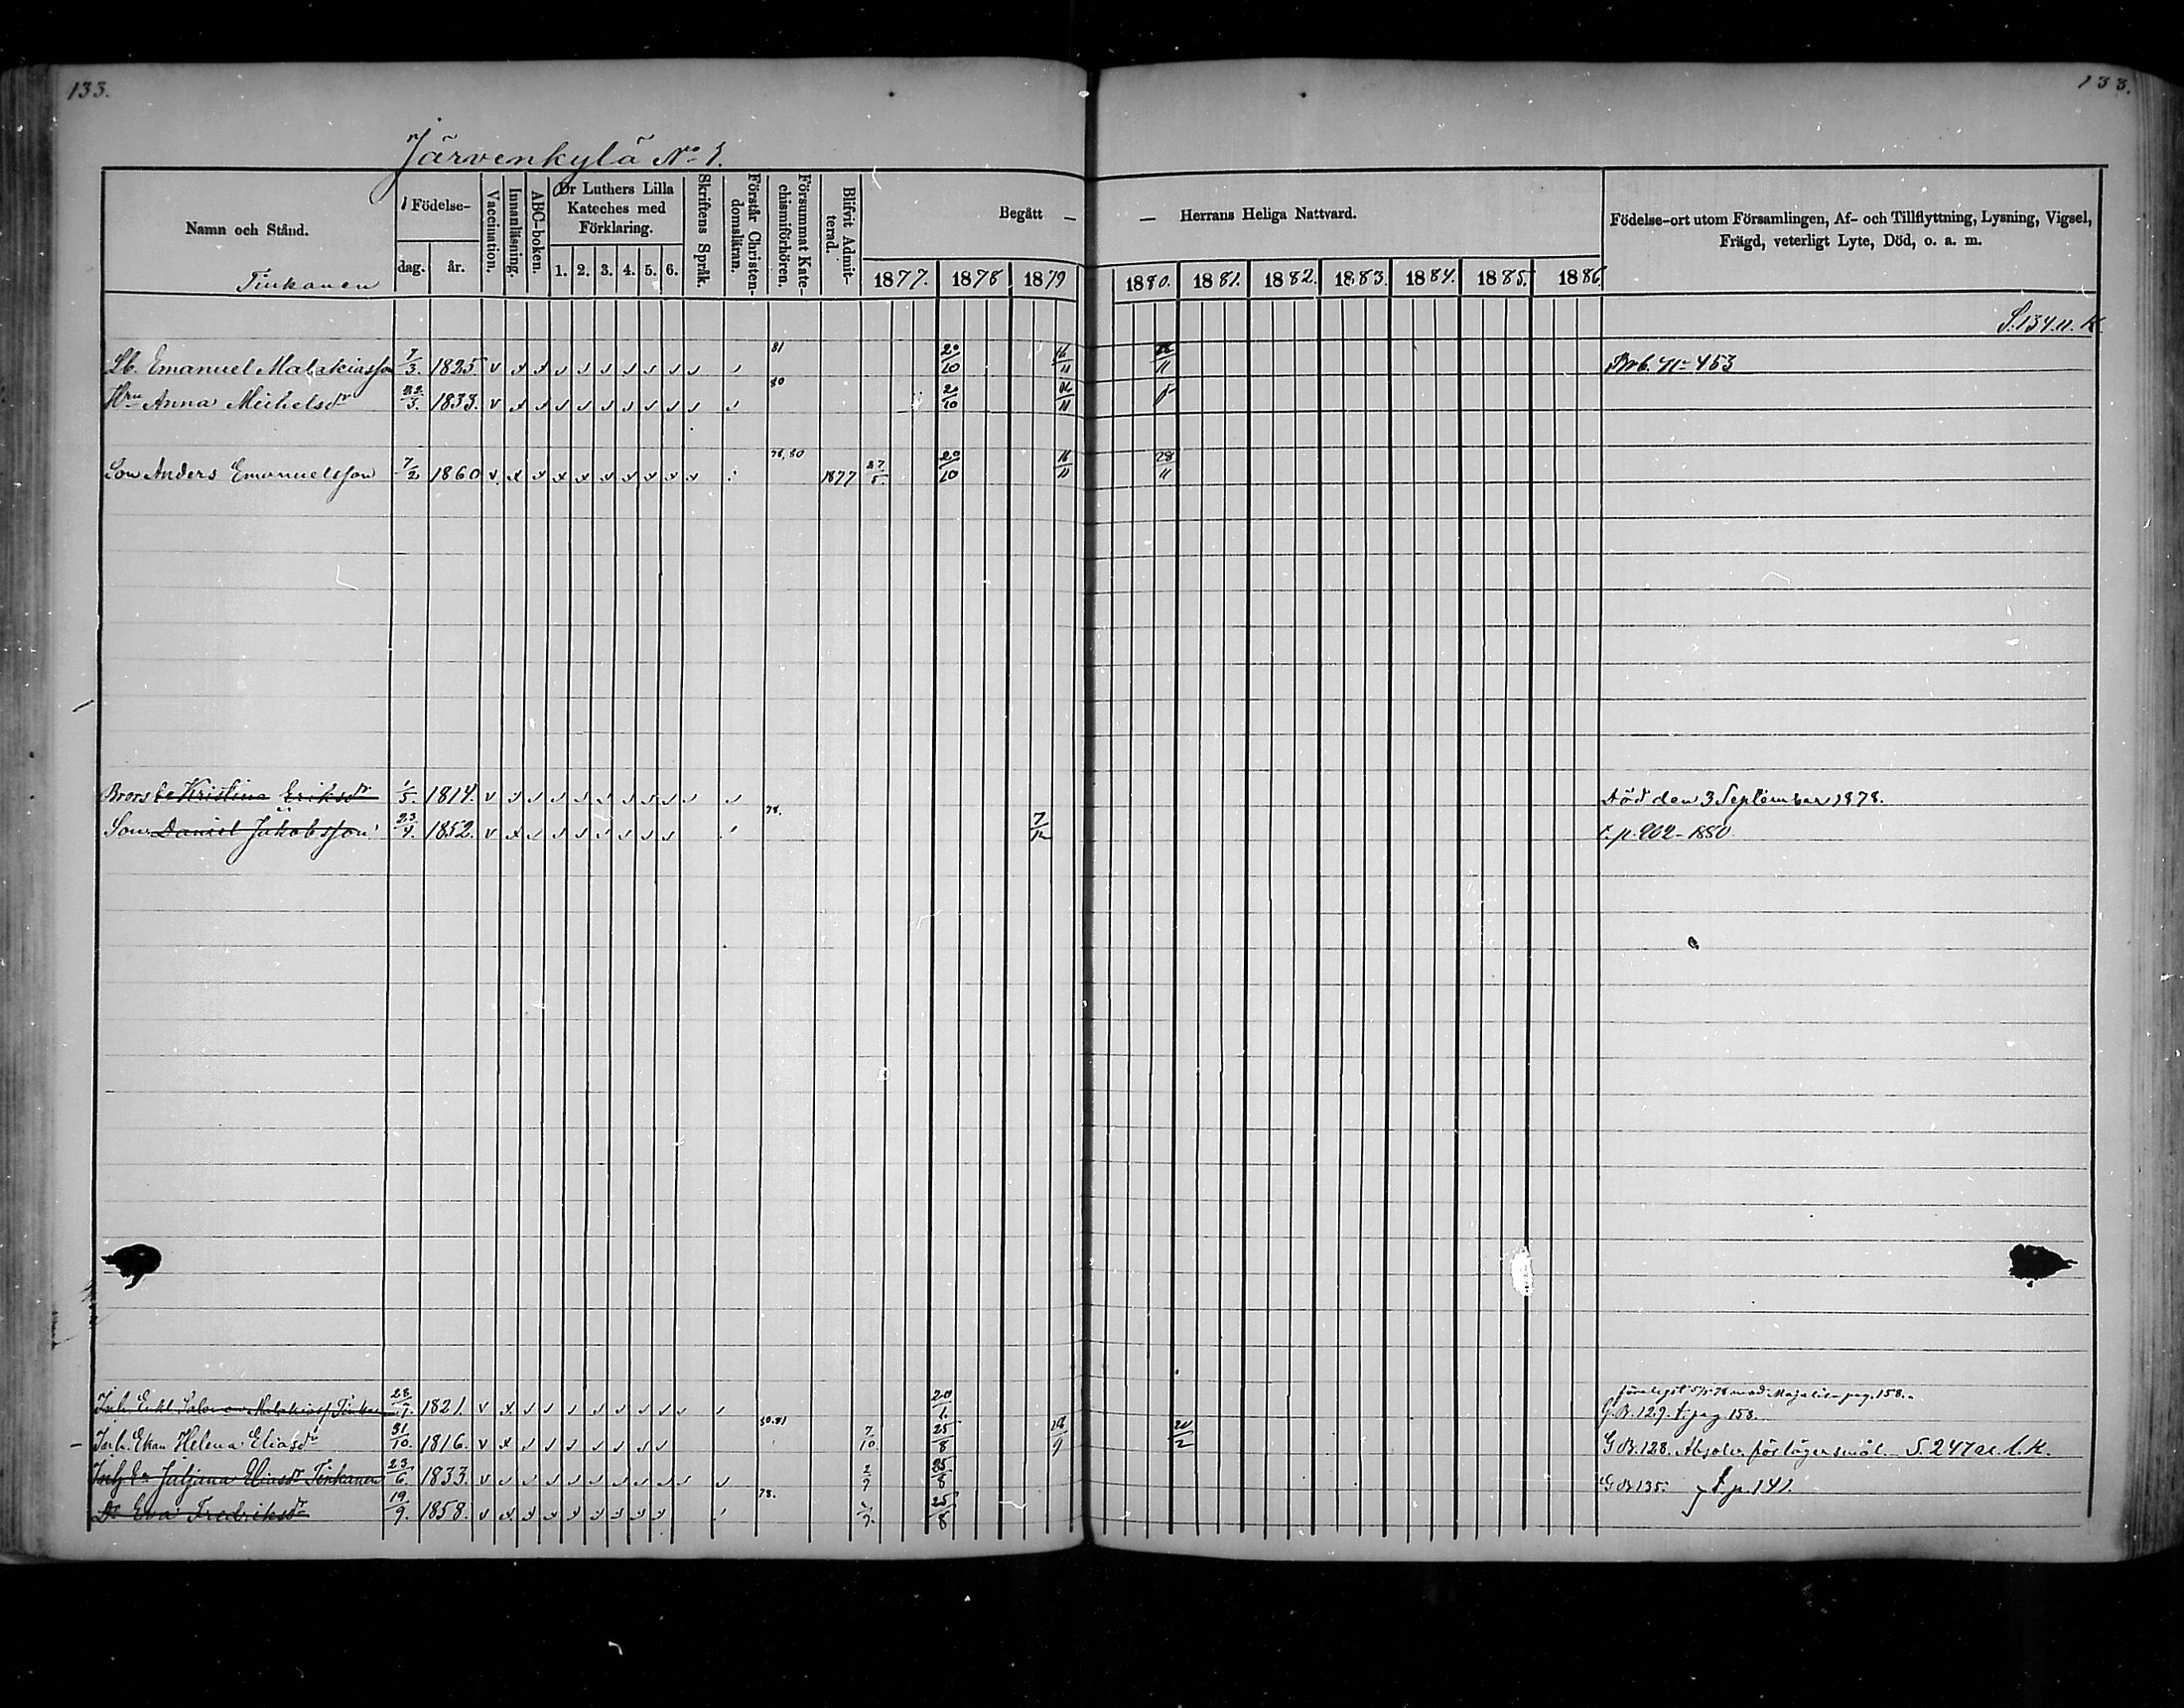 133.
133.
Järvenkylä No 1.
Namn och Stånd.
Födelse-
dag. år.
Vaccination.
Innanläsning.
ABC-boken.
Dr Luthers Lilla Kateches med Förklaring.
1. 2. 3. 4. 5. 6.
Skriftens Språk.
Förstår Christendomsläran.
Försummat Katechismiförhören.
Blifvit Admitterad.
Begått — — Herrans Heliga Nattvard.
1877. 1878 1879 1880. 1881. 1882. 1883. 1884. 1885. 1886.
Födelse-ort utom Församlingen, Af- och Tillflyttning, Lysning, Vigsel, Frägd, veterligt Lyte, Död, o. a. m.
Tinkanen
S. 134. u. K.
Lb. Emanuel Malakiasson 7/3. 1825. v x x 81 20/10 16/11 28/11 Prb. No 453
Hru Anna Michelsdr 22/3. 1833. v x x 80 20/10 11
Son Anders Emanuelsson 7/2 1860 v. x x x x x x x x 78, 80 1877 27/5. 20/10 16/11 28/11
Brors Kristina Eriksdr 1/5. 1814. v Död den 3 September 1878.
Son Daniel Jakobsson 23/4. 1852. v x 78. 7/12 t. p. 202 - 1880.
Inh. Enkl. Salomon Malakiasf Tinkanen 28/7. 1821. v x 20/1. G.B. 129. t. pag 158.
Inh. Ekan Helena Eliasdr 31/10. 1816. v x 80.81 7/10 25/8 G.B. 128. Absolv. för lägersmål. S. 247 ae. l. K.
Juljana Eliasdr Tinkanen 23/6 1833. v 2/9 25/8 G.B. 135. t. p. 141.
Dr Eva Fredriksdr 19/9. 1858. v x 78. 25/8